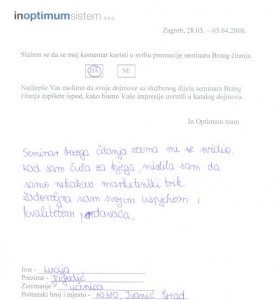 inoptimumsistem d.o.o.
Zagreb, 28.03. – 03.04.2008.
Slažem se da se moj komentar koristi u svrhu promocije seminara Brzog čitanja.
DA
NE
Najljepše Vas molimo da svoje dojmove sa službenog dijela seminara Brzog
čitanja zapišete ispod, kako bismo Vaše impresije uvrstili u katalog dojmova.
In Optimum team
Seminar brzoga čitanja mi se svidio,
kad sam čula za njega, mislila sam da
samo nekakav marketinški trik.
Zadovoljna sam svojim uspjehom i
kvalitetom predavača.
Ime - Lucija
Prezime - Jagodić
Zanimanje - učenica
Poštanski broj i mjesto - 10310 Ivanić Grad